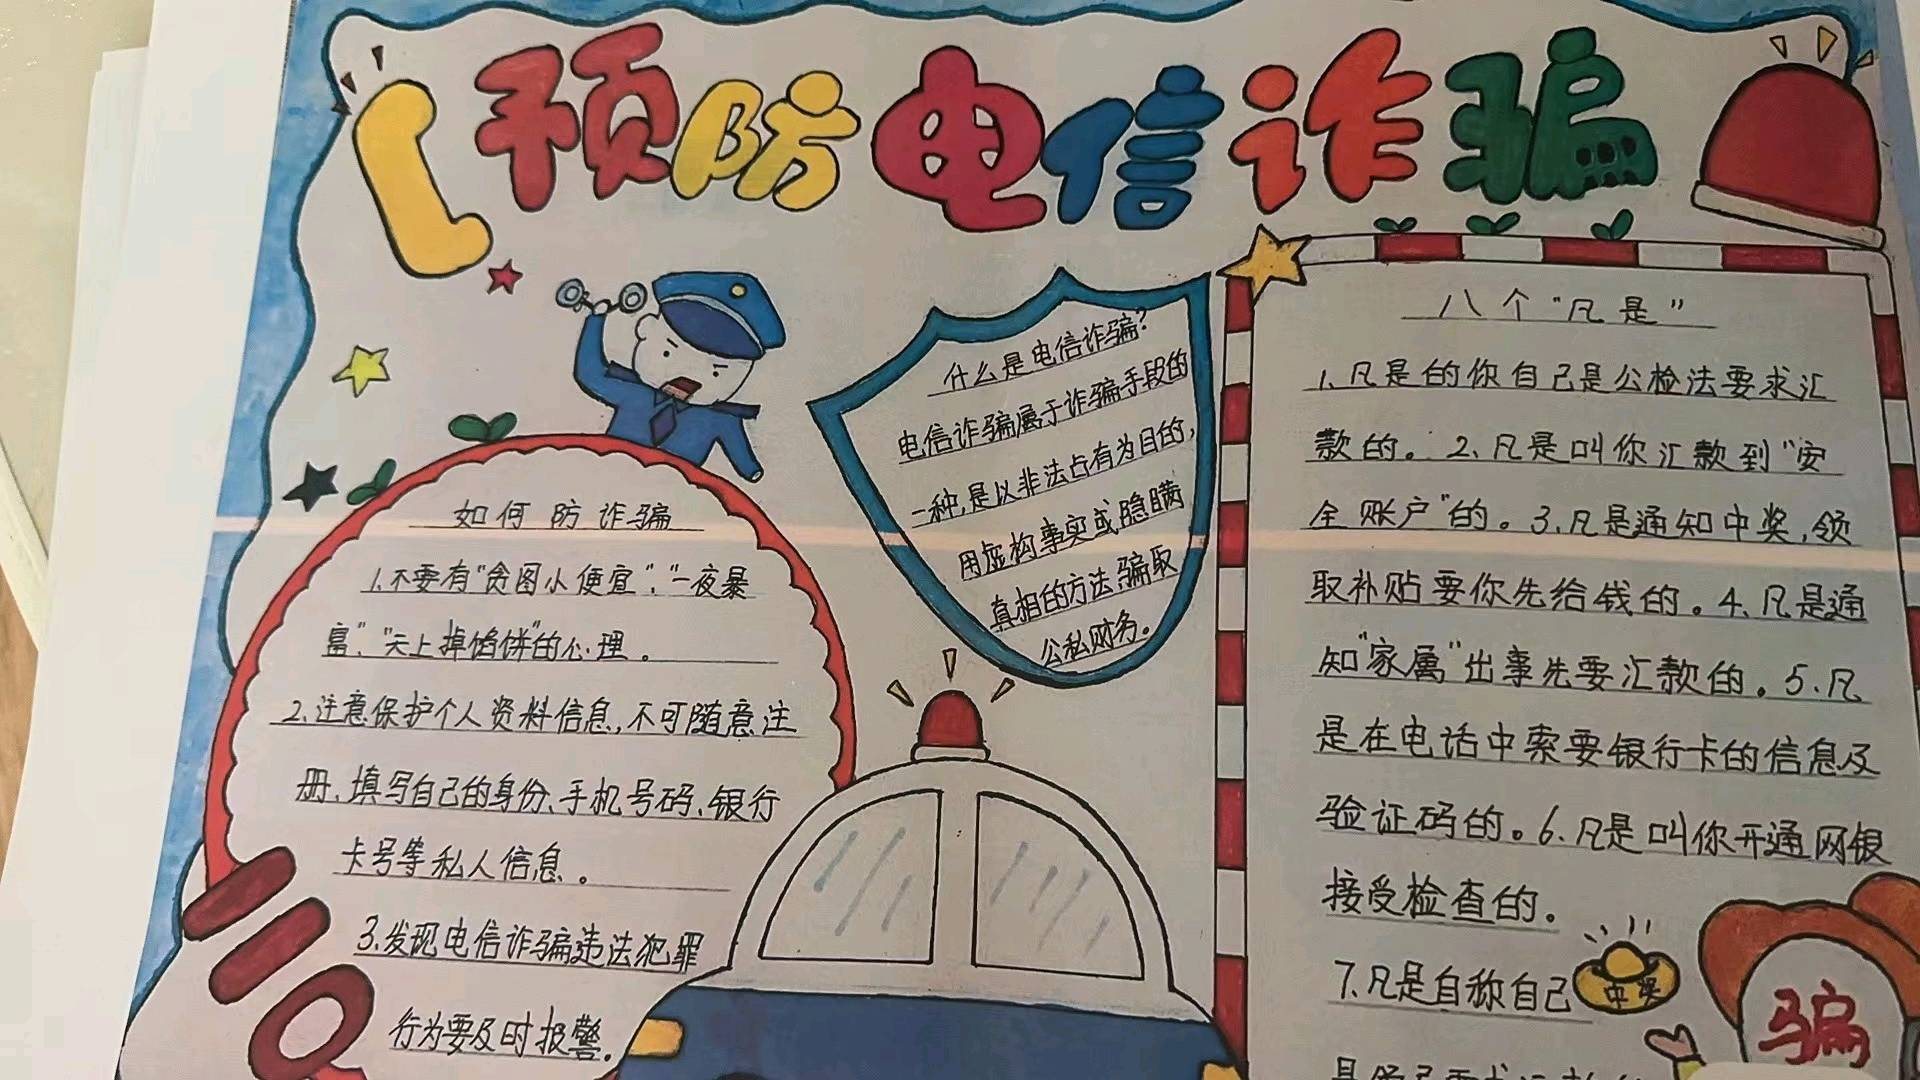 预防电信诈骗
什么是电信诈骗?
电信诈骗属于诈骗手段的
一种,是以非法占有为目的,
用虚构事实或隐瞒
真相的方法,骗取
公私财务。
如何防诈骗
1.不要有“贪图小便宜”、“一夜暴
富”、“天上掉馅饼”的心理。
2.注意保护个人资料信息,不可随意注
册、填写自己的身份、手机号码、银行
卡号等私人信息。
3.发现电信诈骗违法犯罪
行为要及时报警。
110
八个“凡是”
1、凡是的你自己是公检法要求汇
款的。2、凡是叫你汇款到“安
全账户”的。3、凡是通知中奖,领
取补贴要你先给钱的。4、凡是通
知“家属”出事先要汇款的。5、凡
是在电话中索要银行卡的信息及
验证码的。6、凡是叫你开通网银
接受检查的。
7、凡是自称自己
中奖
骗